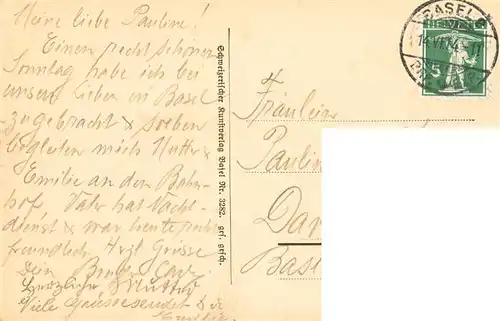 Meine liebe Pauline!
Einen recht schönen
Sonntag habe ich bei
unsern Lieben in Basel
zugebracht & soeben
begleiten mich Mutter &
Emilie an den Bahn-
hof. Vater hat Nacht-
dienst & war heute
freundlich. Hrzl. Grüsse
Dein Bruder
Herzliche Mutter
Viele Grüsse sendet Dir
Emilie
Schweizerischer Kunstverlag Basel Nr. 3282. ges. gesch.
BASEL
HELVETIA
5
Fräulein
Paulin
Dar
Base